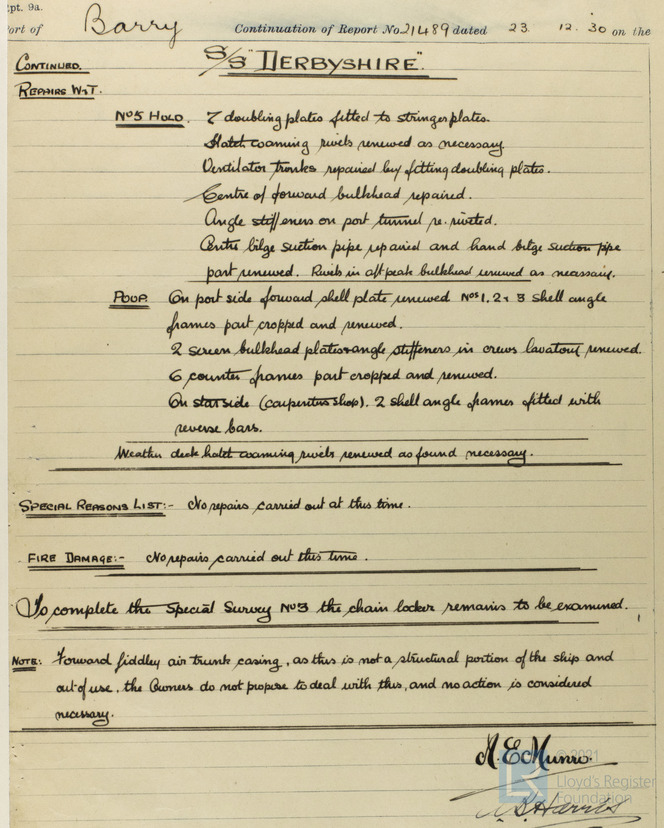 Rpt. 9a.
Port of Barry Continuation of Report No 21489 dated 23. 12. 30 on the
S/S "DERBYSHIRE".
CONTINUED.
REPAIRS W&T.
No5 HOLD. 7 doubling plates fitted to stringer plates.
Hatch coaming rivets renewed as necessary.
Ventilator trunks repaired by fitting doubling plates.
Centre of forward bulkhead repaired.
Angle stiffeners on port tunnel re-riveted.
Centre bilge suction pipe repaired and hand bilge suction pipe
part renewed. Rivets in aft peak bulkhead renewed as necessary.
POOP. On port side forward shell plate renewed Nos 1, 2 & 3 shell angle
frames part cropped and renewed.
2 screen bulkhead plates & angle stiffeners in crews lavatory renewed.
6 counter frames part cropped and renewed.
On star side (carpenters shop). 2 shell angle frames fitted with
reverse bars.
Weather deck hatch coaming rivets renewed as found necessary.
SPECIAL REASONS LIST:- No repairs carried out at this time.
FIRE DAMAGE:- No repairs carried out this time.
To complete the Special Survey No3 the chain locker remains to be examined.
NOTE: Forward fiddley air trunk casing, as this is not a structural portion of the ship and
out of use, the Owners do not propose to deal with this, and no action is considered
necessary.
A. E. Munro.
© 2021
Lloyd's Register
Foundation
Harris